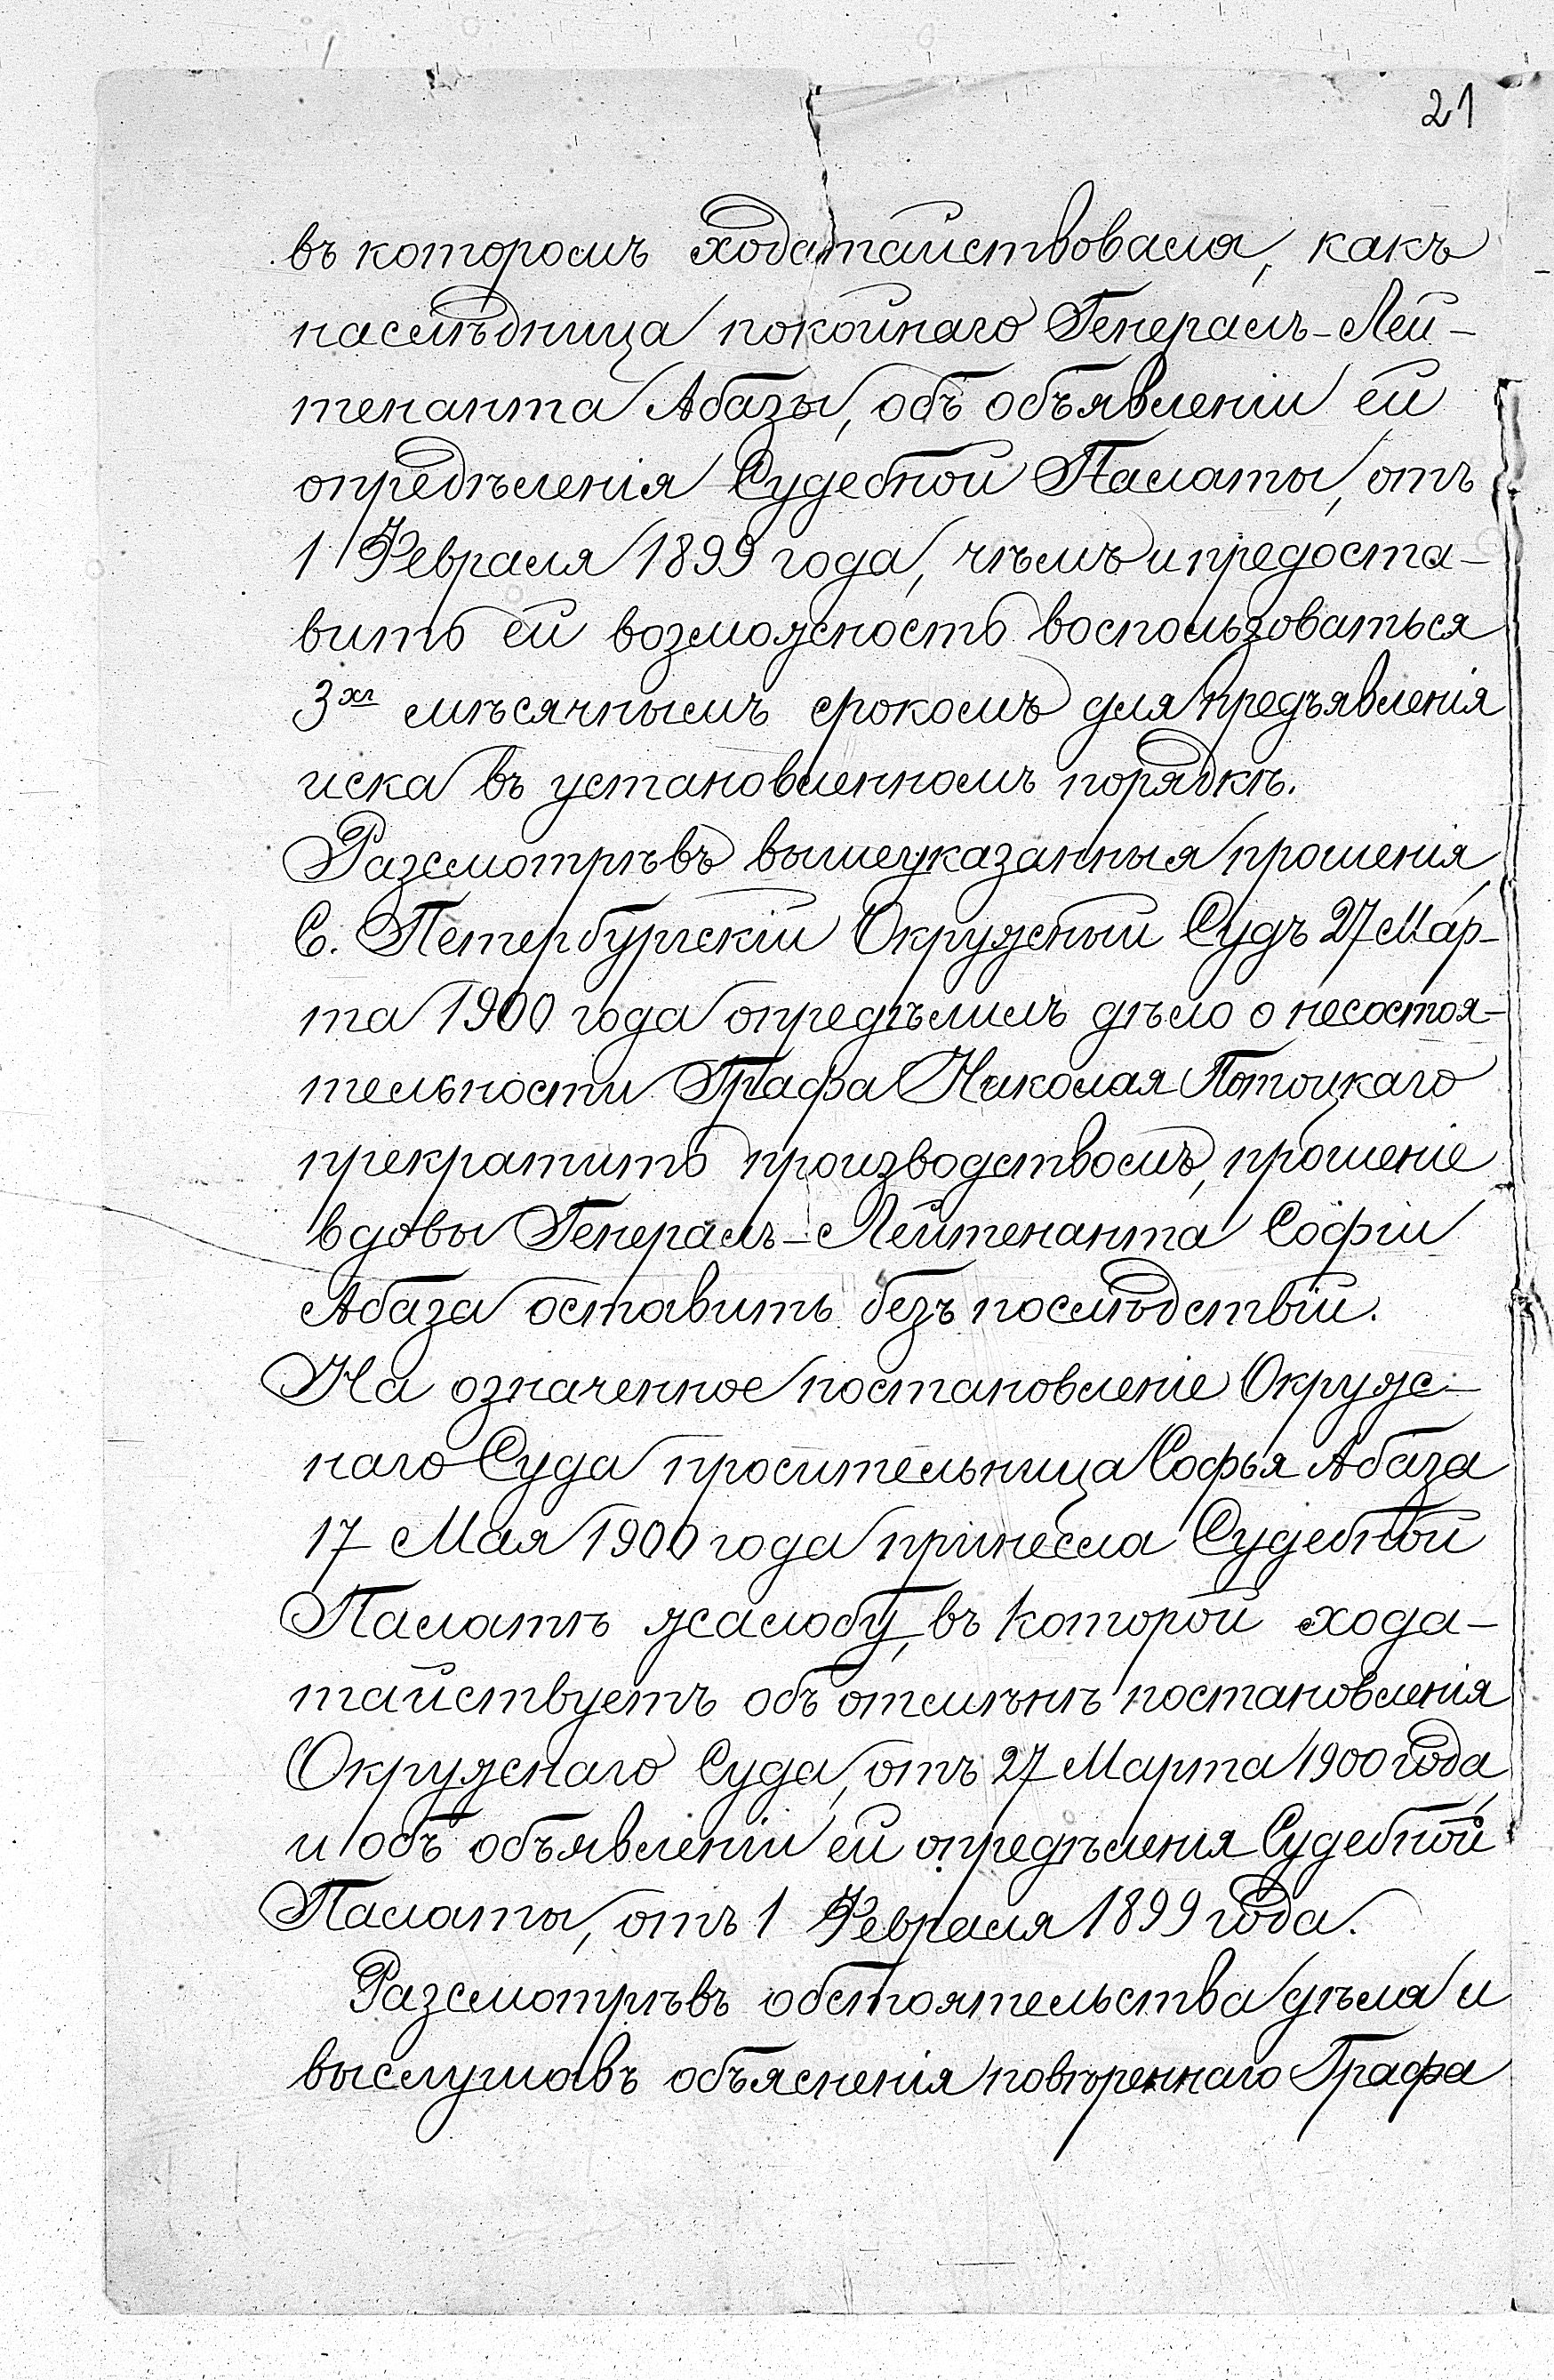 21
въ которомъ ходатайствовала, какъ
наслѣдница покойнаго Генералъ-Лей-
тенанта Абазы, объ объявленіи ей
опредѣленія Судебной Палаты, отъ
1 Февраля 1899 года, чѣмъ и предоста-
вить ей возможность воспользоваться
3хъ мѣсячнымъ срокомъ для предъявленія
иска въ установленномъ порядкѣ.
Разсмотрѣвъ вышеуказанныя прошенія,
С. Петербургскій Окружный Судъ 27 Мар-
та 1900 года опредѣлилъ дѣло о несостоя-
тельности Графа Николая Потоцкаго
прекратить производствомъ, прошеніе
вдовы Генералъ-Лейтенанта Софіи
Абаза оставить безъ послѣдствій.
На означенное постановленіе Окруж-
наго Суда просительница Софья Абаза
17 Мая 1900 года принесла Судебной
Палатѣ жалобу, въ которой хода-
тайствуетъ объ отмѣнѣ постановленія
Окружнаго Суда, отъ 27 Марта 1900 года,
и объ объявленіи ей опредѣленія Судебной
Палаты, отъ 1 Февраля 1899 года.
Разсмотрѣвъ обстоятельства дѣла и
выслушавъ объясненія повѣреннаго Графа